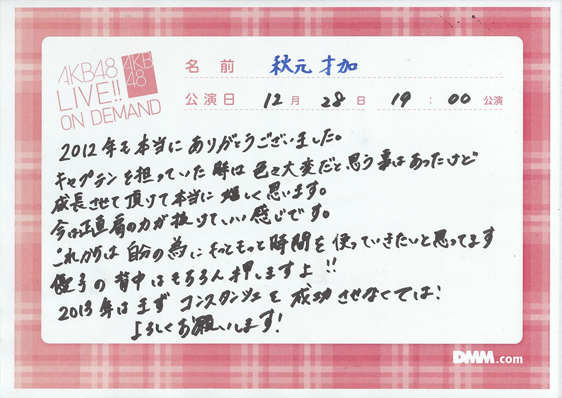 AKB48
LIVE!!
ON DEMAND
AKB
48
名前 秋元才加
公演日 12月 28日 19:00 公演
2012年も本当にありがとうございました。
キャプテンを担っていた時は色々大変だと思う事はあったけど
成長させて頂けて本当に嬉しく思います。
今は正直肩の力が抜けていい感じです。
これからは自分の為にもっともっと時間を使っていきたいと思ってます
優子の背中はもちろん押しますよ!!
2013年はまずコンスタンツェを成功させなくては!
よろしくお願いします!
DMM.com